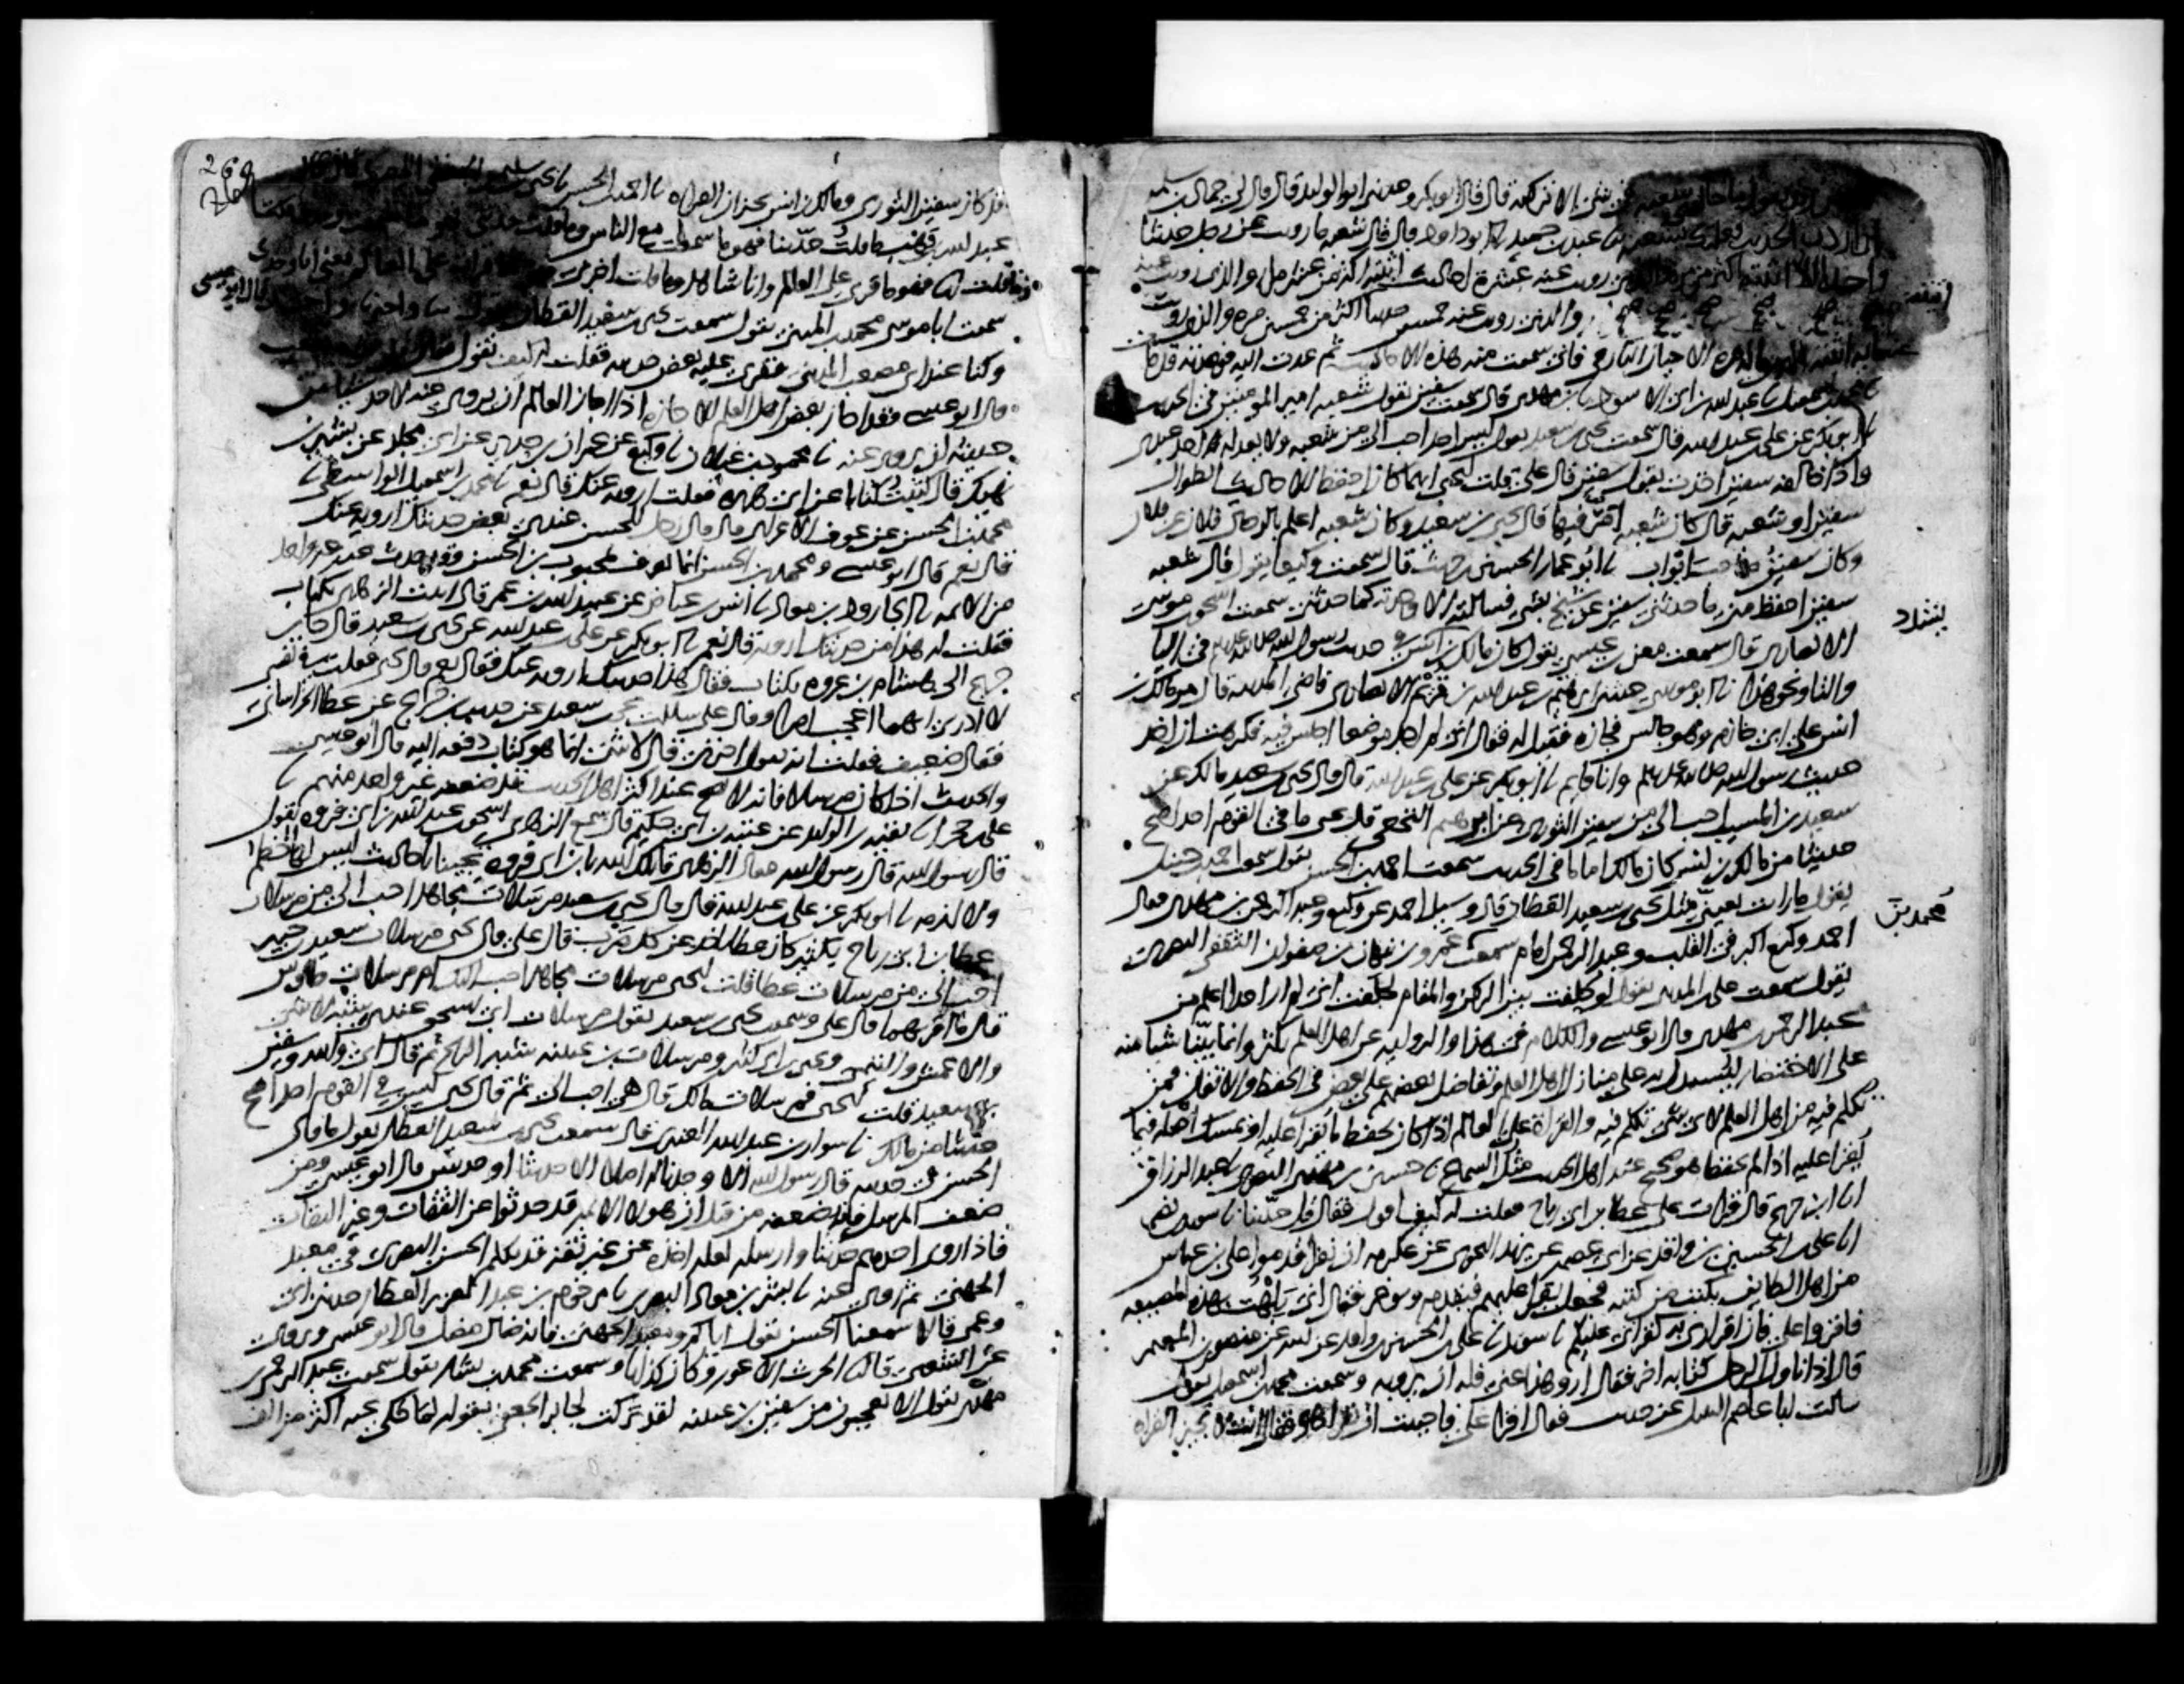 شي الا تركته قال قال ابو بكر وحدثنى ابو الوليد قال قال لى حماد بن سلمه
ان اردت الحديث فعليك بشعبه نا عبد بن حميد نا ابو داود قال قال شعبه ما رويت عن رجل حديثا
واحدا الا اتيته اكثر من مره والذى رويت عنه عشرة احاديث اتيته اكثر من عشر مرار والذى رويت عنه
خمسين حديثا اكثر من خمسين مره والذى رويت
الا حبان البارقى فانى سمعت منه هذه الاحاديث ثم عدت اليه فوجدته قد مات
نا محمد بن اسمعيل نا عبد الله بن ابى الاسود نا ابن مهدى قال سمعت سفين يقول شعبه امير المومنين فى الحديث
نا ابو بكر عن على بن عبد الله قال سمعت يحيى بن سعيد يقول ليس احد احب الى من شعبه ولا يعدله احد عندى
واذا خالفه سفين اخذت بقول سفين قال على قلت ليحيى ايهما كان احفظ للاحاديث الطوال
سفين او شعبه قال كان شعبه امر فيها قال يحيى بن سعيد وكان شعبه اعلم بالرجال فلان عن فلان
وكان سفين صاحب ابواب نا ابو عمار الحسين بن حريث قال سمعت وكيعا يقول قال شعبه
سفين احفظ منى ما حدثنى سفين عن شيخ بشى فسالته الا وجدته كما حدثنى سمعت اسحق بن موسى
الانصارى قال سمعت معن بن عيسى يقول كان مالك بن انس يشدد فى حديث رسول الله صلى الله عليه وسلم فى اليا
والتا ونحو هذا نا ابو موسى حدثنى ابرهيم بن عبد الله بن قريم الانصارى قاضى المدينه قال مر مالك بن
انس على ابى حازم وهو جالس فجازه فقيل له فقال انى لم اجد موضعا اجلس فيه فكرهت ان اخذ
حديث رسول الله صلى الله عليه وسلم وانا قايم نا ابو بكر عن على بن عبد الله قال قال يحيى بن سعيد مالك عن
سعيد بن المسيب احب الى من سفين الثورى عن ابرهيم النخعى قال يحيى ما فى القوم احد اصح
حديثا من مالك بن انس كان مالك اماما فى الحديث سمعت احمد بن الحسن يقول سمعت احمد بن حنبل
يقول ما رات بعينى مثل يحيى بن سعيد القطان قال وسيل احمد عن وكيع وعبد الرحمن بن مهدى فقال
احمد وكيع اكبر فى القلب وعبد الرحمن امام سمعت محمد بن عمرو بن نبهان بن صفوان الثقفى البصرى
يقول سمعت على بن المدينى يقول لو حلفت بين الركن والمقام لحلفت انى لم ار احدا اعلم من
عبد الرحمن بن مهدى قال ابو عيسى والكلام فى هذا والروايه عن اهل العلم يكثر وانما بينا شيا منه
على الاختصار ليستدل به على منازل اهل العلم وتفاضل بعضهم على بعض فى الحفظ والاتقان فمن
تكلم فيه من اهل العلم لاى شى تكلم فيه والقراة على العالم اذا كان يحفظ ما يقرا عليه او يمسك اصله فيما
يقرا عليه اذا لم يحفظ هو صحيح عند اهل الحديث مثل السماع نا حسين بن مهدى البصرى نا عبد الرزاق
انا ابن جريج قال قرات على عطا بن ابى رباح فقلت له كيف اقول فقال قل حدثنا نا سويد بن نصر
انا على بن الحسين بن واقد عن ابى عصمه عن يزيد النحوى عن عكرمه ان نفرا قدموا على بن عباس
من اهل الطايف بكتب من كتبه فجعل يقرا عليهم فيقدم ويوخر فقال انى بلهت لهذه المصيبه
فاقروا على فان اقرارى به كقراتى عليكم نا سويد نا على بن الحسين بن واقد عن ابيه عن منصور بن المعتمر
قال اذا ناول الرجل كتابه اخر فقال ارو هذا عنى فله ان يرويه وسمعت محمد بن اسمعيل يقول
سالت ابا عاصم النبيل عن حديث فقال اقرا على فاحببت ان يقرا هو فقال انت لا تجيز القراة
اتيته
يشدد
محمد بن
268
قد كان سفين الثورى ومالك بن انس يجيزان القراه نا احمد بن الحسن نا يحيى بن سليمن الجعفى المصرى قال قال
عبد الله بن وهب ما قلت حدثنا فهو ما سمعت مع الناس وما قلت حدثنى فهو ما سمعت وحدى
وما قلت انا فهو ما قرى على العالم وانا شاهد وما قلت اخبرنى فهو ما قرات على العالم يعنى انا وحدى
سمعت ابا موسى محمد بن المثنى يقول سمعت يحيى بن سعيد القطان يقول نا وانا واحد قال ابو عيسى
وكنا عند ابى مصعب المدينى فقرى عليه بعض حديثه فقلت له كيف نقول فقال
قال ابو عيسى وقد اجاز بعض اهل العلم الاجازه اذا اجاز العالم ان يروى عنه لاحد شيا من
حديثه ان يرويه عنه نا محمود بن غيلان نا وكيع عن عمران بن حدير عن ابى مجلز عن بشير بن
نهيك قال كتبت كتابا عن ابى هريره فقلت ارويه عنك قال نعم نا محمد بن اسمعيل الواسطى نا
محمد بن الحسن عن عوف الاعرابى قال قال رجل للحسن عندى بعض حديثك ارويه عنك
قال نعم قال ابو عيسى ومحمد بن الحسن انما يعرف بمحبوب بن الحسن وقد حدث عنه غير واحد
من الايمه نا الجارود بن معاذ نا انس بن عياض عن عبيد الله بن عمر قال اتيت الزهرى بكتاب
فقلت له هذا من حديثك ارويه قال نعم نا ابو بكر عن على بن عبد الله عن يحيى بن سعيد قال جا ابن
جريج الى هشام بن عروه بكتاب فقال هذا حديثك ارويه عنك فقال نعم قال يحيى فقلت فى نفسى
لا ادرى ايهما اعجب امرا وقال على سالت يحيى بن سعيد عن حديث ابن جريج عن عطا الخراسانى
فقال ضعيف فقلت انه يقول اخبرنى قال لا شى انما هو كتاب دفعه اليه قال ابو عيسى
والحديث اذا كان مرسلا فانه لا يصح عند اكثر اهل الحديث قد ضعفه غير واحد منهم نا
على بن حجر نا بقيه بن الوليد عن عتبه بن ابى حكيم قال سمع الزهرى اسحق بن عبد الله بن ابى فروه يقول
قال رسول الله قال رسول الله فقال الزهرى قاتلك الله يا بن ابى فروه تجينا باحاديث ليس لها خطم
ولا ازمه نا ابو بكر عن على بن عبد الله قال قال يحيى بن سعيد مرسلات مجاهد احب الى من مرسلات
عطا بن ابى رباح بكثير كان عطا ياخذ عن كل ضرب قال على قال يحيى مرسلات سعيد بن جبير
احب الى من مرسلات عطا قلت ليحيى مرسلات مجاهد احب اليك ام مرسلات طاوس
قال ما اقربهما قال على وسمعت يحيى بن سعيد يقول مرسلات ابى اسحق عندى شبه لا شى
والاعمش والتيمى ويحيى بن ابى كثير ومرسلات بن عيينه شبه الريح ثم قال اى والله وسفين
بن سعيد قلت ليحيى فمرسلات مالك قال هى احب الى ثم قال يحيى ليس فى القوم احد اصح
حديثا من مالك نا سوار بن عبد الله العنبرى قال سمعت يحيى بن سعيد القطان يقول ما قال
الحسن فى حديثه قال رسول الله الا وجدنا له اصلا الا حديثا او حديثين قال ابو عيسى ومن
ضعف المرسل فانه ضعفه من قبل ان هولا الايمه قد حدثوا عن الثقات وغير الثقات
فاذا روى احدهم حديثا وارسله لعله اخذه عن غير ثقه قد تكلم الحسن البصرى فى معبد
الجهنى ثم روى عنه نا بشر بن معاذ البصرى نا مرحوم بن عبد العزيز العطار حدثنى ابى
وعمى قالا سمعنا الحسن يقول اياكم ومعبد الجهنى فانه ضال مضل قال ابو عيسى ويروى
عن الشعبى قال نا الحرث الاعور وكان كذابا وسمعت محمد بن بشار يقول سمعت عبد الرحمن بن
مهدى يقول الا تعجبون من سفين بن عيينه لقد تركت لجابر الجعفى بقوله لما حكى عنه اكثر من الف